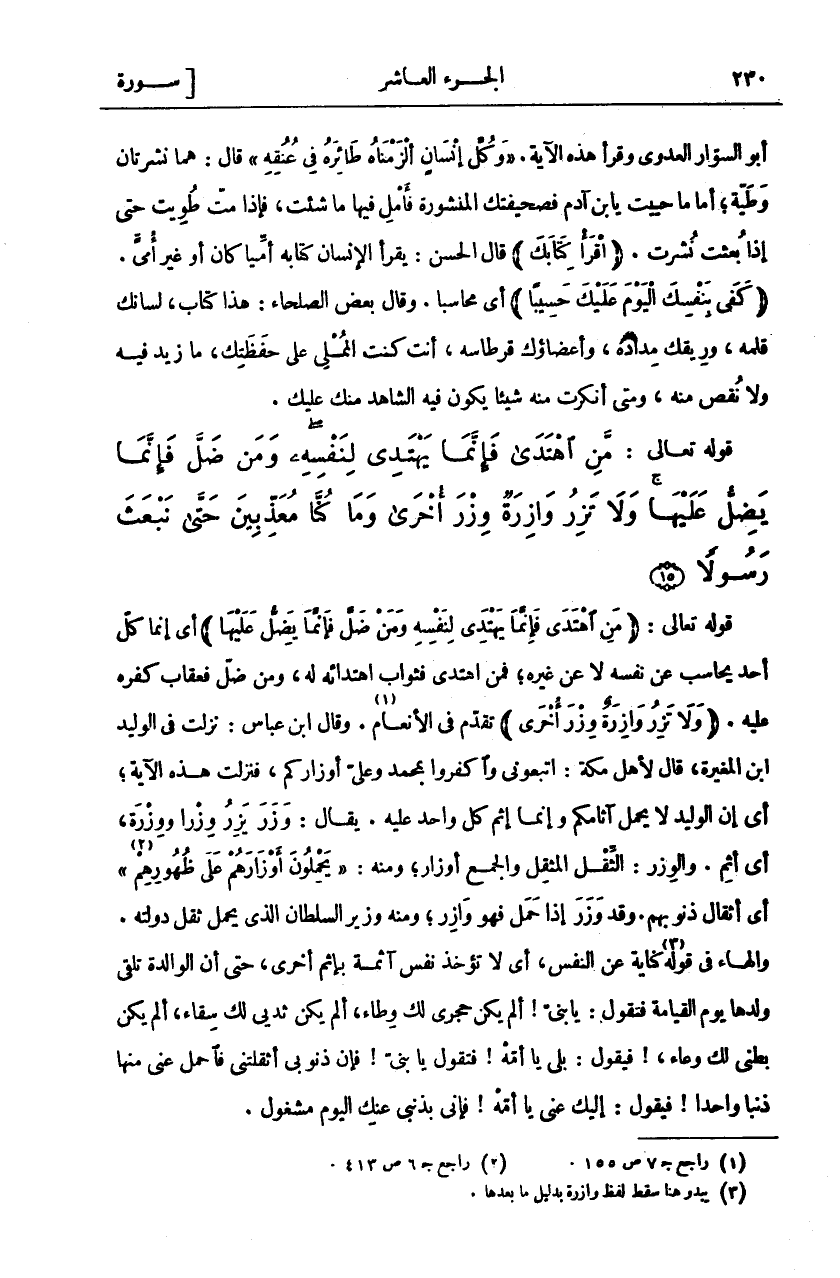 ٢٣٠ الجـزء العـاشر [ ســورة
أبو السوّار العدوى وقرأ هذه الآية . «وَكُلَّ إِنْسَانٍ أَلْزَمْنَاهُ طَائِرَهُ فِي عُنُقِهِ» قال : هما نشرتان
وَطَيّة ؛ أما ما حييت يابن آدم فصحيفتك المنشورة فأَمْلِ فيها ما شئت ، فإذا متّ طُويت حتى
إذا بُعثت نُشرت . ﴿ اقْرَأْ كِتَابَكَ ﴾ قال الحسن : يقرأ الإنسان كتابه أمّيا كان أو غير أُمىّ .
﴿ كَفَى بِنَفْسِكَ الْيَوْمَ عَلَيْكَ حَسِيبًا ﴾ أى محاسبا . وقال بعض الصلحاء : هذا كتاب ، لسانك
قلمه ، وريقك مِداده ، وأعضاؤك قرطاسه ، أنت كنت المُمْلِي على حَفَظَتِك ، ما زيد فيــه
ولا نُقص منه ، ومتى أنكرت منه شيئا يكون فيه الشاهد منك عليك .
قوله تعـالى : مَّنِ ٱهْتَدَىٰ فَإِنَّمَـا يَهْتَدِى لِنَفْسِهِۦ ۖ وَمَن ضَلَّ فَإِنَّمَـا
يَضِلُّ عَلَيْهَـا ۚ وَلَا تَزِرُ وَازِرَةٌ وِزْرَ أُخْرَىٰ وَمَا كُنَّا مُعَذِّبِينَ حَتَّىٰ نَبْعَثَ
رَسُـولًا ⟨١٥⟩
قوله تعالى : ﴿ مَنِ ٱهْتَدَى فَإِنَّمَا يَهْتَدِى لِنَفْسِهِ وَمَنْ ضَلَّ فَإِنَّمَا يَضِلُّ عَلَيْهَا ﴾ أى إنما كلّ
أحد يحاسب عن نفسه لا عن غيره ؛ فمن اهتدى فثواب اهتدائه له ، ومن ضلّ فعقاب كفره
عليه . ﴿ وَلَا تَزِرُ وَازِرَةٌ وِزْرَ أُخْرَى ﴾ تقدّم فى الأنعـام (١) . وقال ابن عباس : نزلت فى الوليد
ابن المغيرة ، قال لأهل مكة : اتبعونى وٱكفروا بمحمد وعلىّ أوزاركم ، فنزلت هـذه الآية ؛
أى إن الوليد لا يحمل آثامكم وإنمـا إثم كل واحد عليه . يقـال : وَزَرَ يَزِرُ وِزْرا ووِزْرَة ،
أى أثِم . والوِزر : الثّقْـل المثقِل والجمـع أوزار ؛ ومنه : « يَحْمِلُونَ أَوْزَارَهُمْ عَلَى ظُهُورِهِمْ (٢) »
أى أثقال ذنوبهم . وقد وَزَرَ إذا حَمَل فهو وَازِر ؛ ومنه وزير السلطان الذى يحمل ثقل دولته .
والهـاء فى قوله (٣) كناية عن النفس ، أى لا تؤخذ نفس آثمـة بإثم أخرى ، حتى أن الوالدة تلقى
ولدها يوم القيامة فتقول : يابنىّ ! ألم يكن حجرى لك وِطاء ، ألم يكن ثديى لك سِقاء ، ألم يكن
بطنى لك وعاء ، ! فيقول : بلى يا أمّهْ ! فتقول يا بنىّ ! فإن ذنوبى أثقلتنى فٱحمل عنى منها
ذنبا واحدا ! فيقول : إليك عنى يا أمّهْ ! فإنى بذنبى عنك اليوم مشغول .
(١) راجع جـ ٧ ص ١٥٥ . (٢) راجع جـ ٦ ص ٤١٣ .
(٣) يبدو هنا سقط لفظ وازرة بدليل ما بعدها .